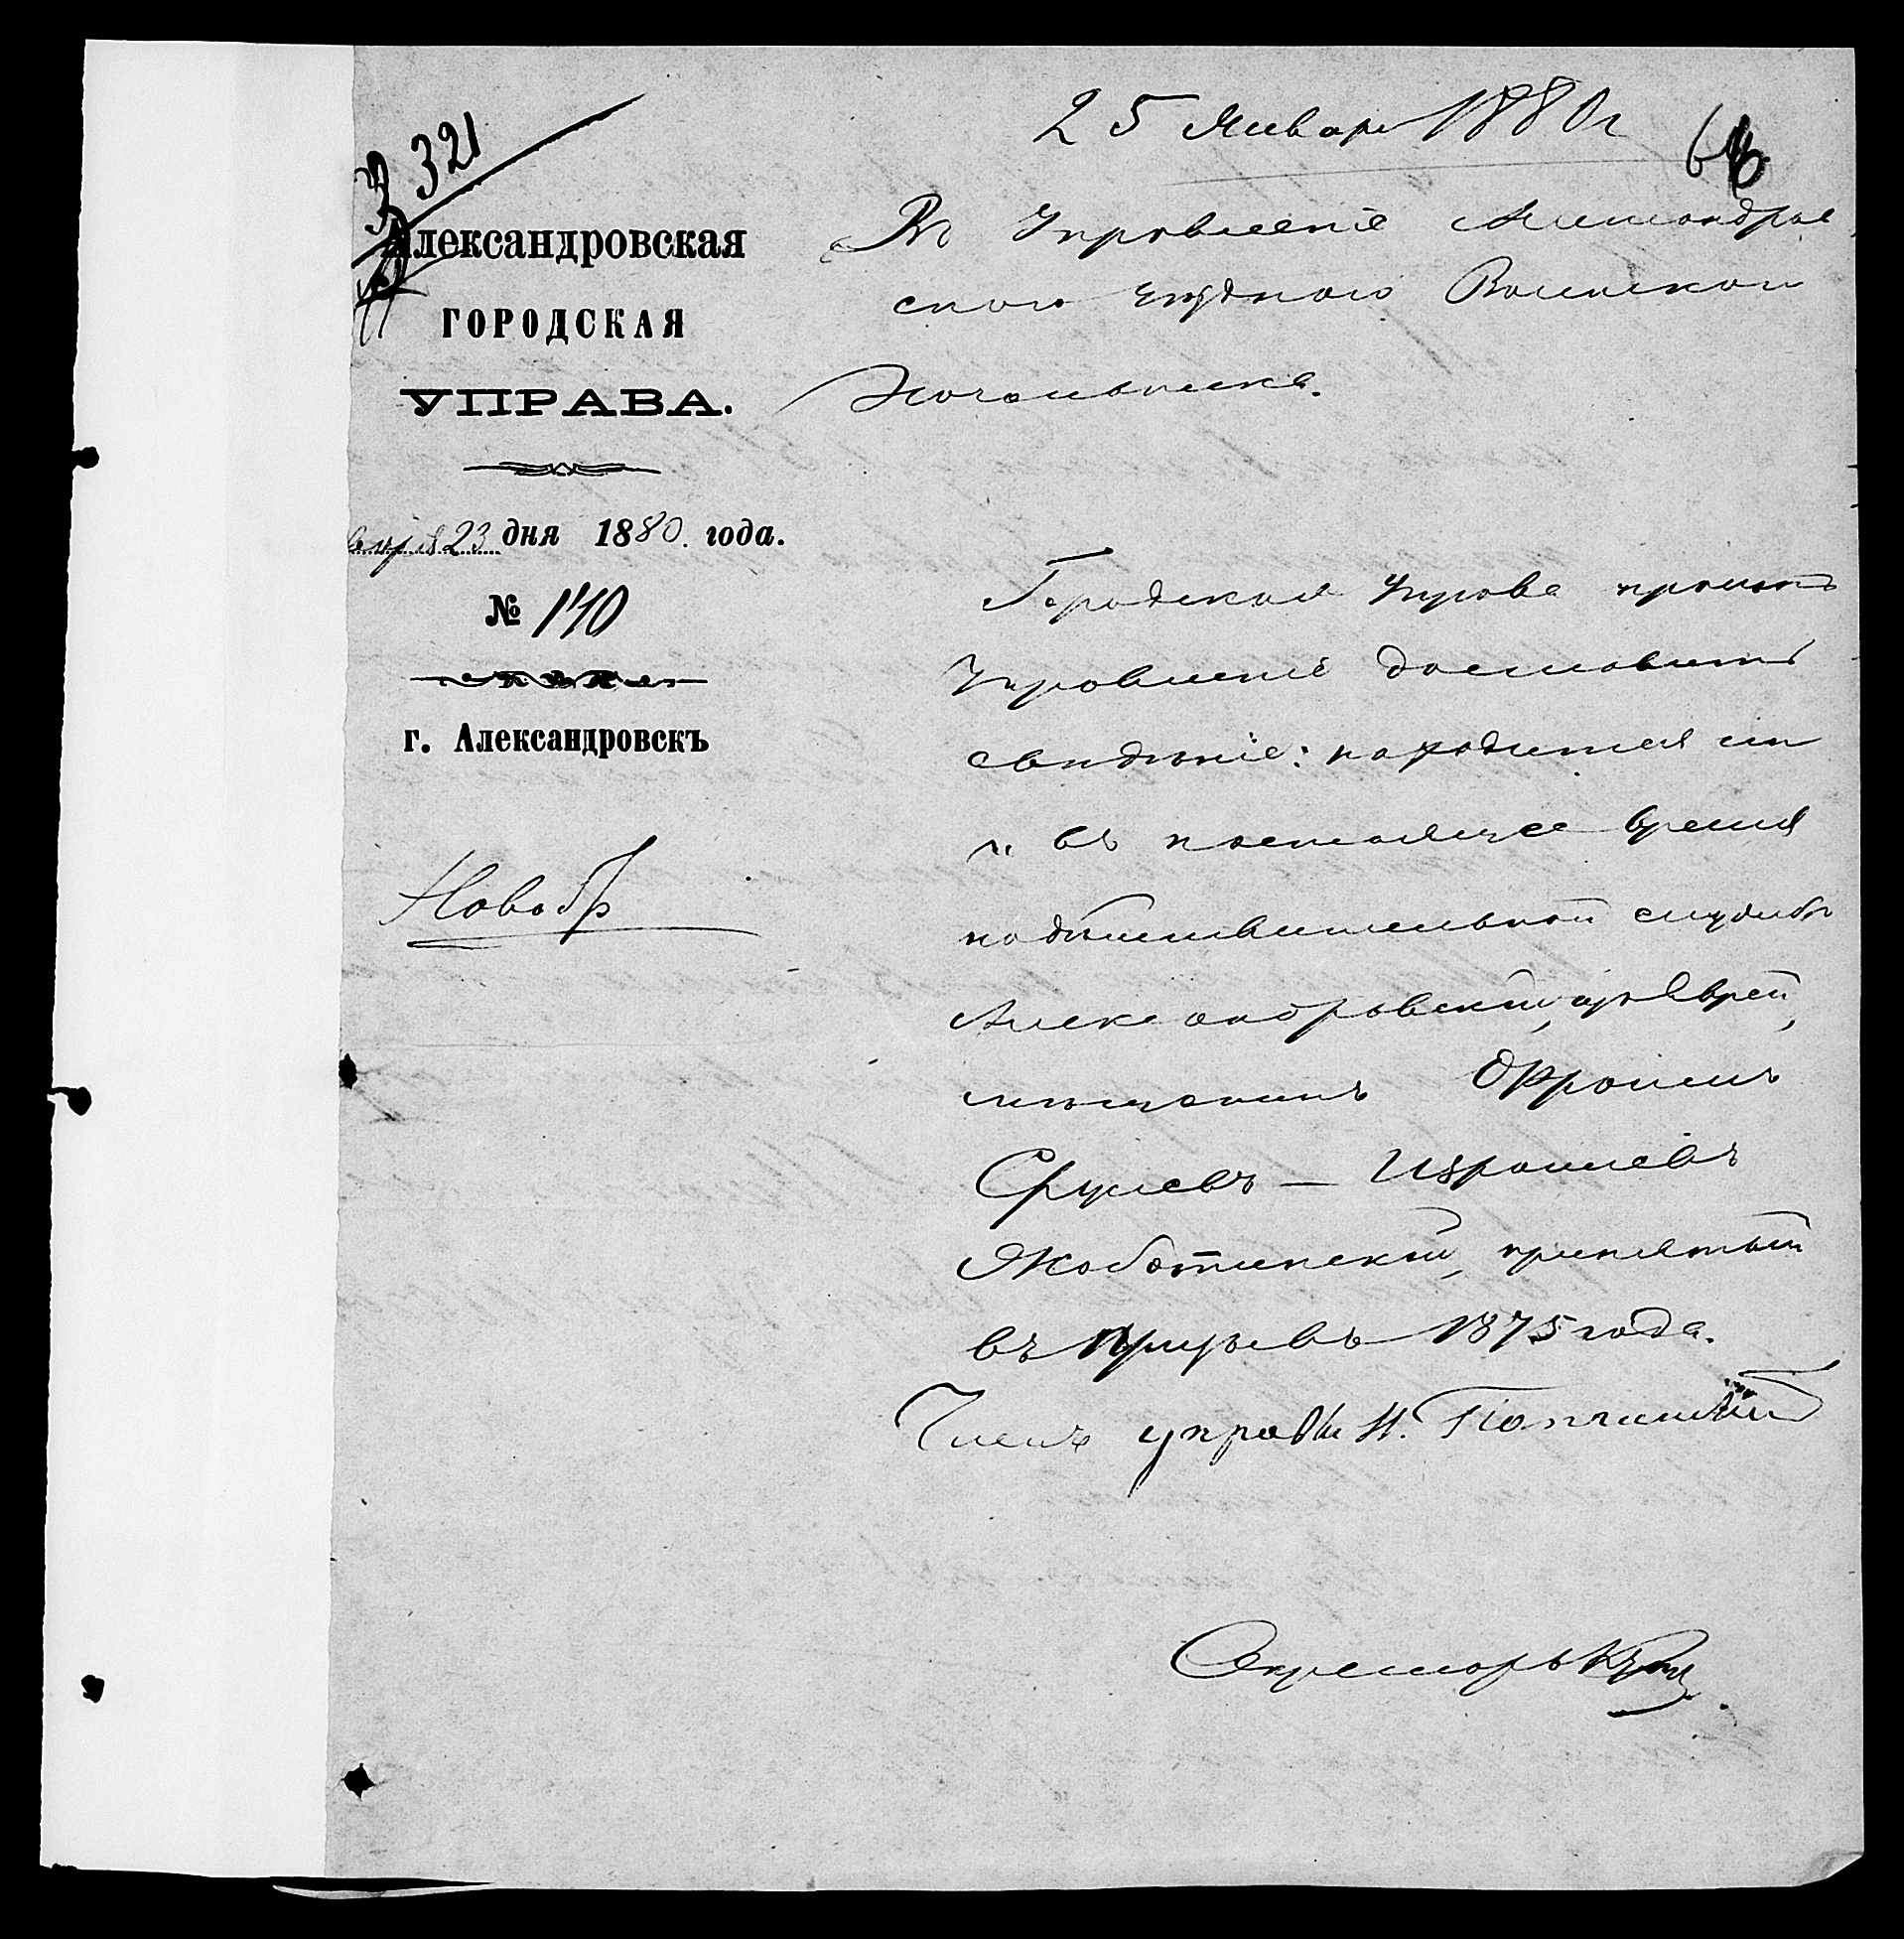 25 Января 1880 г
321
Александровская
ГОРОДСКАЯ
УПРАВА.
23 дня 1880. года.
№ 140
г. Александровскъ
Въ Управленіе Александров
скаго Уѣзднаго Воинскаго
Начальника.
Городская Управа проситъ
Управленіе доставить
свѣдѣніе: находится ли
въ настоящее время
на дѣйствительной службѣ
Александровскій, изъ Еврей,
мѣщанинъ Эфроимъ
Срулевъ – Израилевъ
Жаботинскій, принятый
въ призывъ 1875 года.
Членъ управы И.
Секретарь